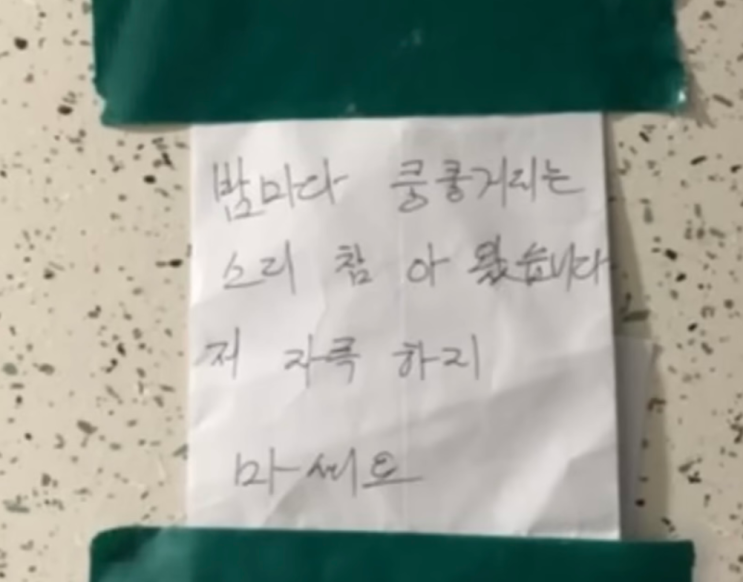 밤마다 쿵쿵거리는
소리 참 아 왔습니다
저 자극 하지
마세요